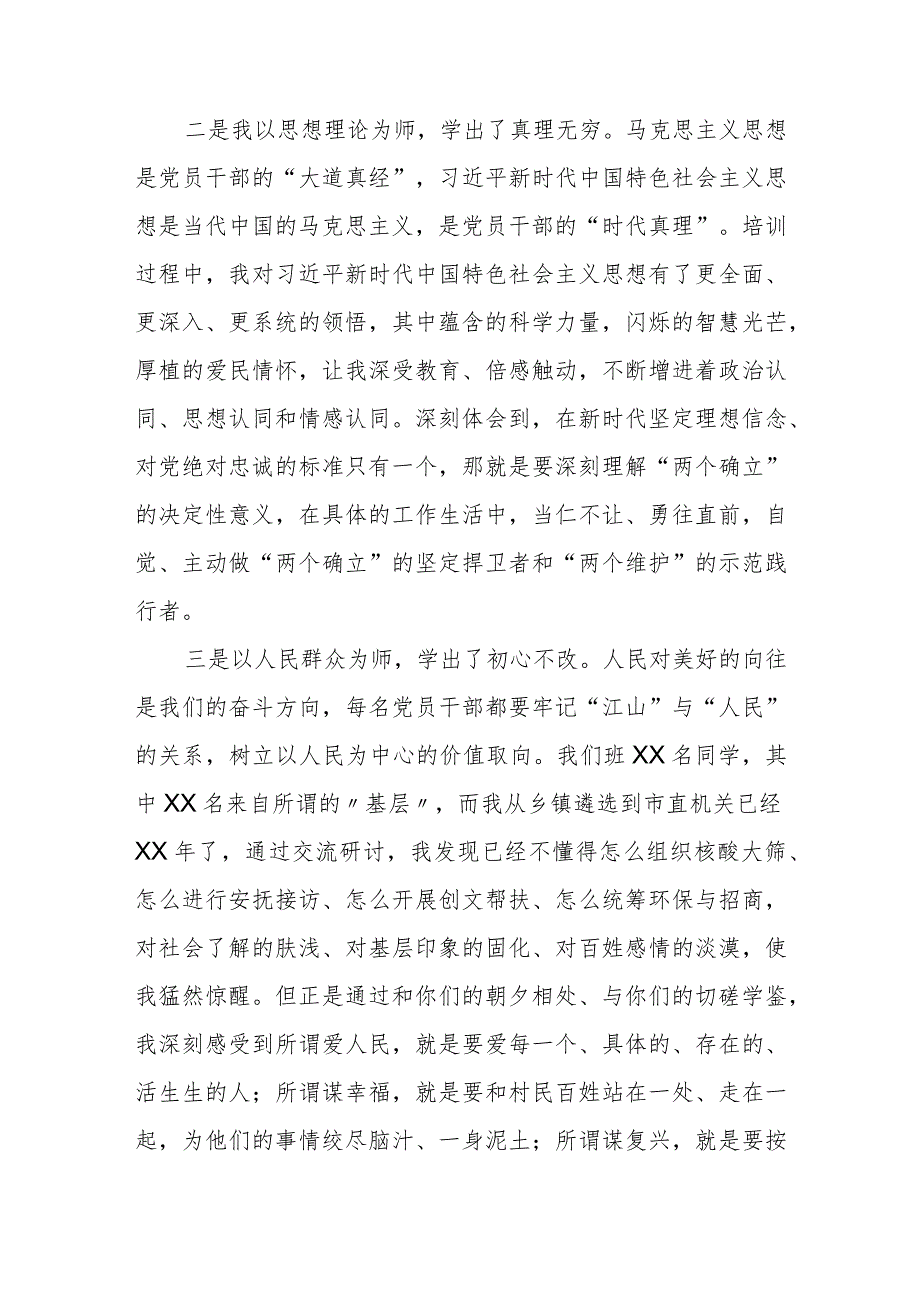 二是我以思想理论为师，学出了真理无穷。马克思主义思想
是党员干部的“大道真经”，习近平新时代中国特色社会主义思
想是当代中国的马克思主义，是党员干部的“时代真理”。培训
过程中，我对习近平新时代中国特色社会主义思想有了更全面、
更深入、更系统的领悟，其中蕴含的科学力量，闪烁的智慧光芒，
厚植的爱民情怀，让我深受教育、倍感触动，不断增进着政治认
同、思想认同和情感认同。深刻体会到，在新时代坚定理想信念、
对党绝对忠诚的标准只有一个，那就是要深刻理解“两个确立”
的决定性意义，在具体的工作生活中，当仁不让、勇往直前，自
觉、主动做“两个确立”的坚定捍卫者和“两个维护”的示范践
行者。
三是以人民群众为师，学出了初心不改。人民对美好的向往
是我们的奋斗方向，每名党员干部都要牢记“江山”与“人民”
的关系，树立以人民为中心的价值取向。我们班 XX 名同学，其
中 XX 名来自所谓的〃基层〃，而我从乡镇遴选到市直机关已经
XX 年了，通过交流研讨，我发现已经不懂得怎么组织核酸大筛、
怎么进行安抚接访、怎么开展创文帮扶、怎么统筹环保与招商，
对社会了解的肤浅、对基层印象的固化、对百姓感情的淡漠，使
我猛然惊醒。但正是通过和你们的朝夕相处、与你们的切磋学鉴，
我深刻感受到所谓爱人民，就是要爱每一个、具体的、存在的、
活生生的人；所谓谋幸福，就是要和村民百姓站在一处、走在一
起，为他们的事情绞尽脑汁、一身泥土；所谓谋复兴，就是要按